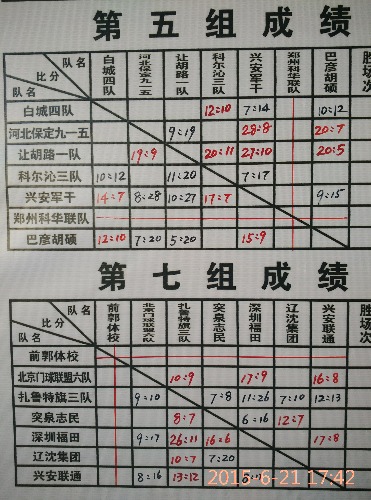 第五组成绩
队名 比分 队名 白城四队 河北保定九一五 让胡路一队 科尔沁三队 兴安军干 郑州科华联队 巴彦胡硕 胜场次
白城四队 12:10 7:14 10:12
河北保定九一五 9:19 28:8 20:7
让胡路一队 19:9 20:11 27:10 20:5
科尔沁三队 10:12 11:20 7:17
兴安军干 14:7 8:28 10:27 17:7 9:15
郑州科华联队
巴彦胡硕 12:10 7:20 5:20 15:9
第七组成绩
队名 比分 队名 前郭体校 北京门球联盟六队 扎鲁特旗三队 突泉志民 深圳福田 辽沈集团 兴安联通 胜场次
前郭体校
北京门球联盟六队 10:9 17:9 16:8
扎鲁特旗三队 9:10 7:8 11:26 7:10 12:13
突泉志民 8:7 6:16 12:7
深圳福田 9:17 26:11 16:6 17:8
辽沈集团 10:7 7:20
兴安联通 8:16 13:12
2015-6-21 17:42